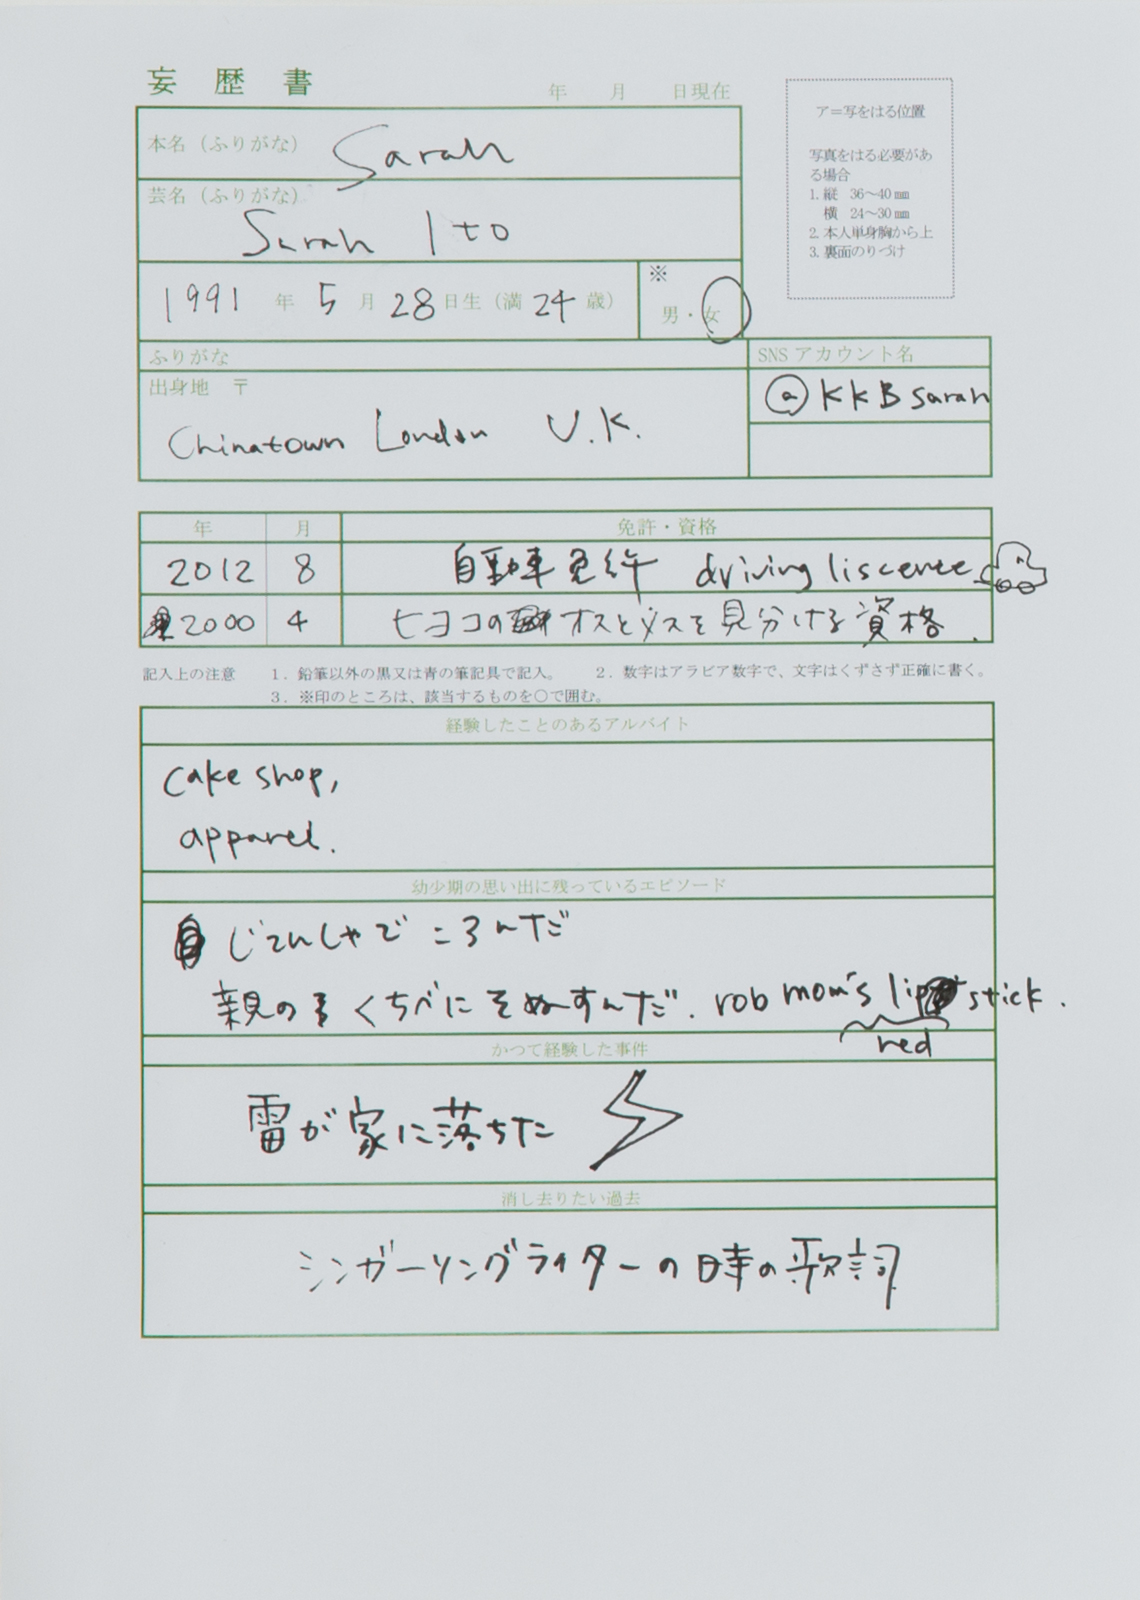 妄歴書
年 月 日現在
ア=写をはる位置
写真をはる必要があ
る場合
1. 縦 36〜40㎜
横 24〜30㎜
2. 本人単身胸から上
3. 裏面のりづけ
本名（ふりがな） Sarah
芸名（ふりがな）
Sarah Ito
1991 年 5 月 28 日生（満 24 歳）
※
男・女
ふりがな
SNS アカウント名
出身地 〒
@KKBsarah
Chinatown London U.K.
年 月 免許・資格
2012 8 自動車免許 driving liscence
2000 4 ヒヨコのオスとメスを見分ける資格.
記入上の注意 1．鉛筆以外の黒又は青の筆記具で記入。 2．数字はアラビア数字で、文字はくずさず正確に書く。
3．※印のところは、該当するものを○で囲む。
経験したことのあるアルバイト
cake shop,
apparel.
幼少期の思い出に残っているエピソード
じてんしゃで ころんだ
親の くちべにをぬすんだ. rob mom's lipstick.
red
かつて経験した事件
雷が家に落ちた
消し去りたい過去
シンガーソングライターの時の歌詞